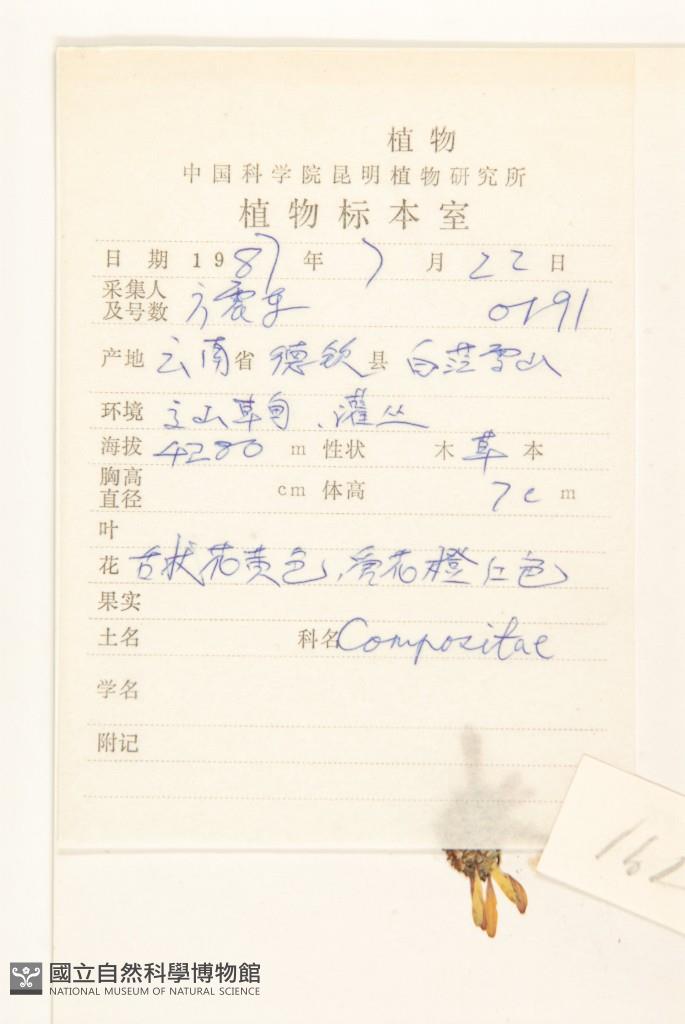 植物
中国科学院昆明植物研究所
植物标本室
日期 1987年 7月 22日
采集人及号数 方震东 0191
产地 云南省 德钦县 白茫雪山
环境 高山草甸、灌丛
海拔 4280 m 性状 木草本
胸高直径 cm 体高 7c m
叶
花 舌状花黄色,管花橙红色
果实
土名 科名 Compositae
学名
附记
國立自然科學博物館
NATIONAL MUSEUM OF NATURAL SCIENCE